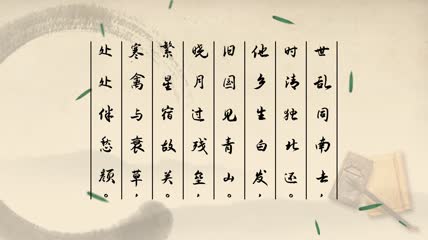 世乱同南去，
时清独北还。
他乡生白发，
旧国见青山。
晓月过残垒，
繁星宿故关。
寒禽与衰草，
处处伴愁颜。